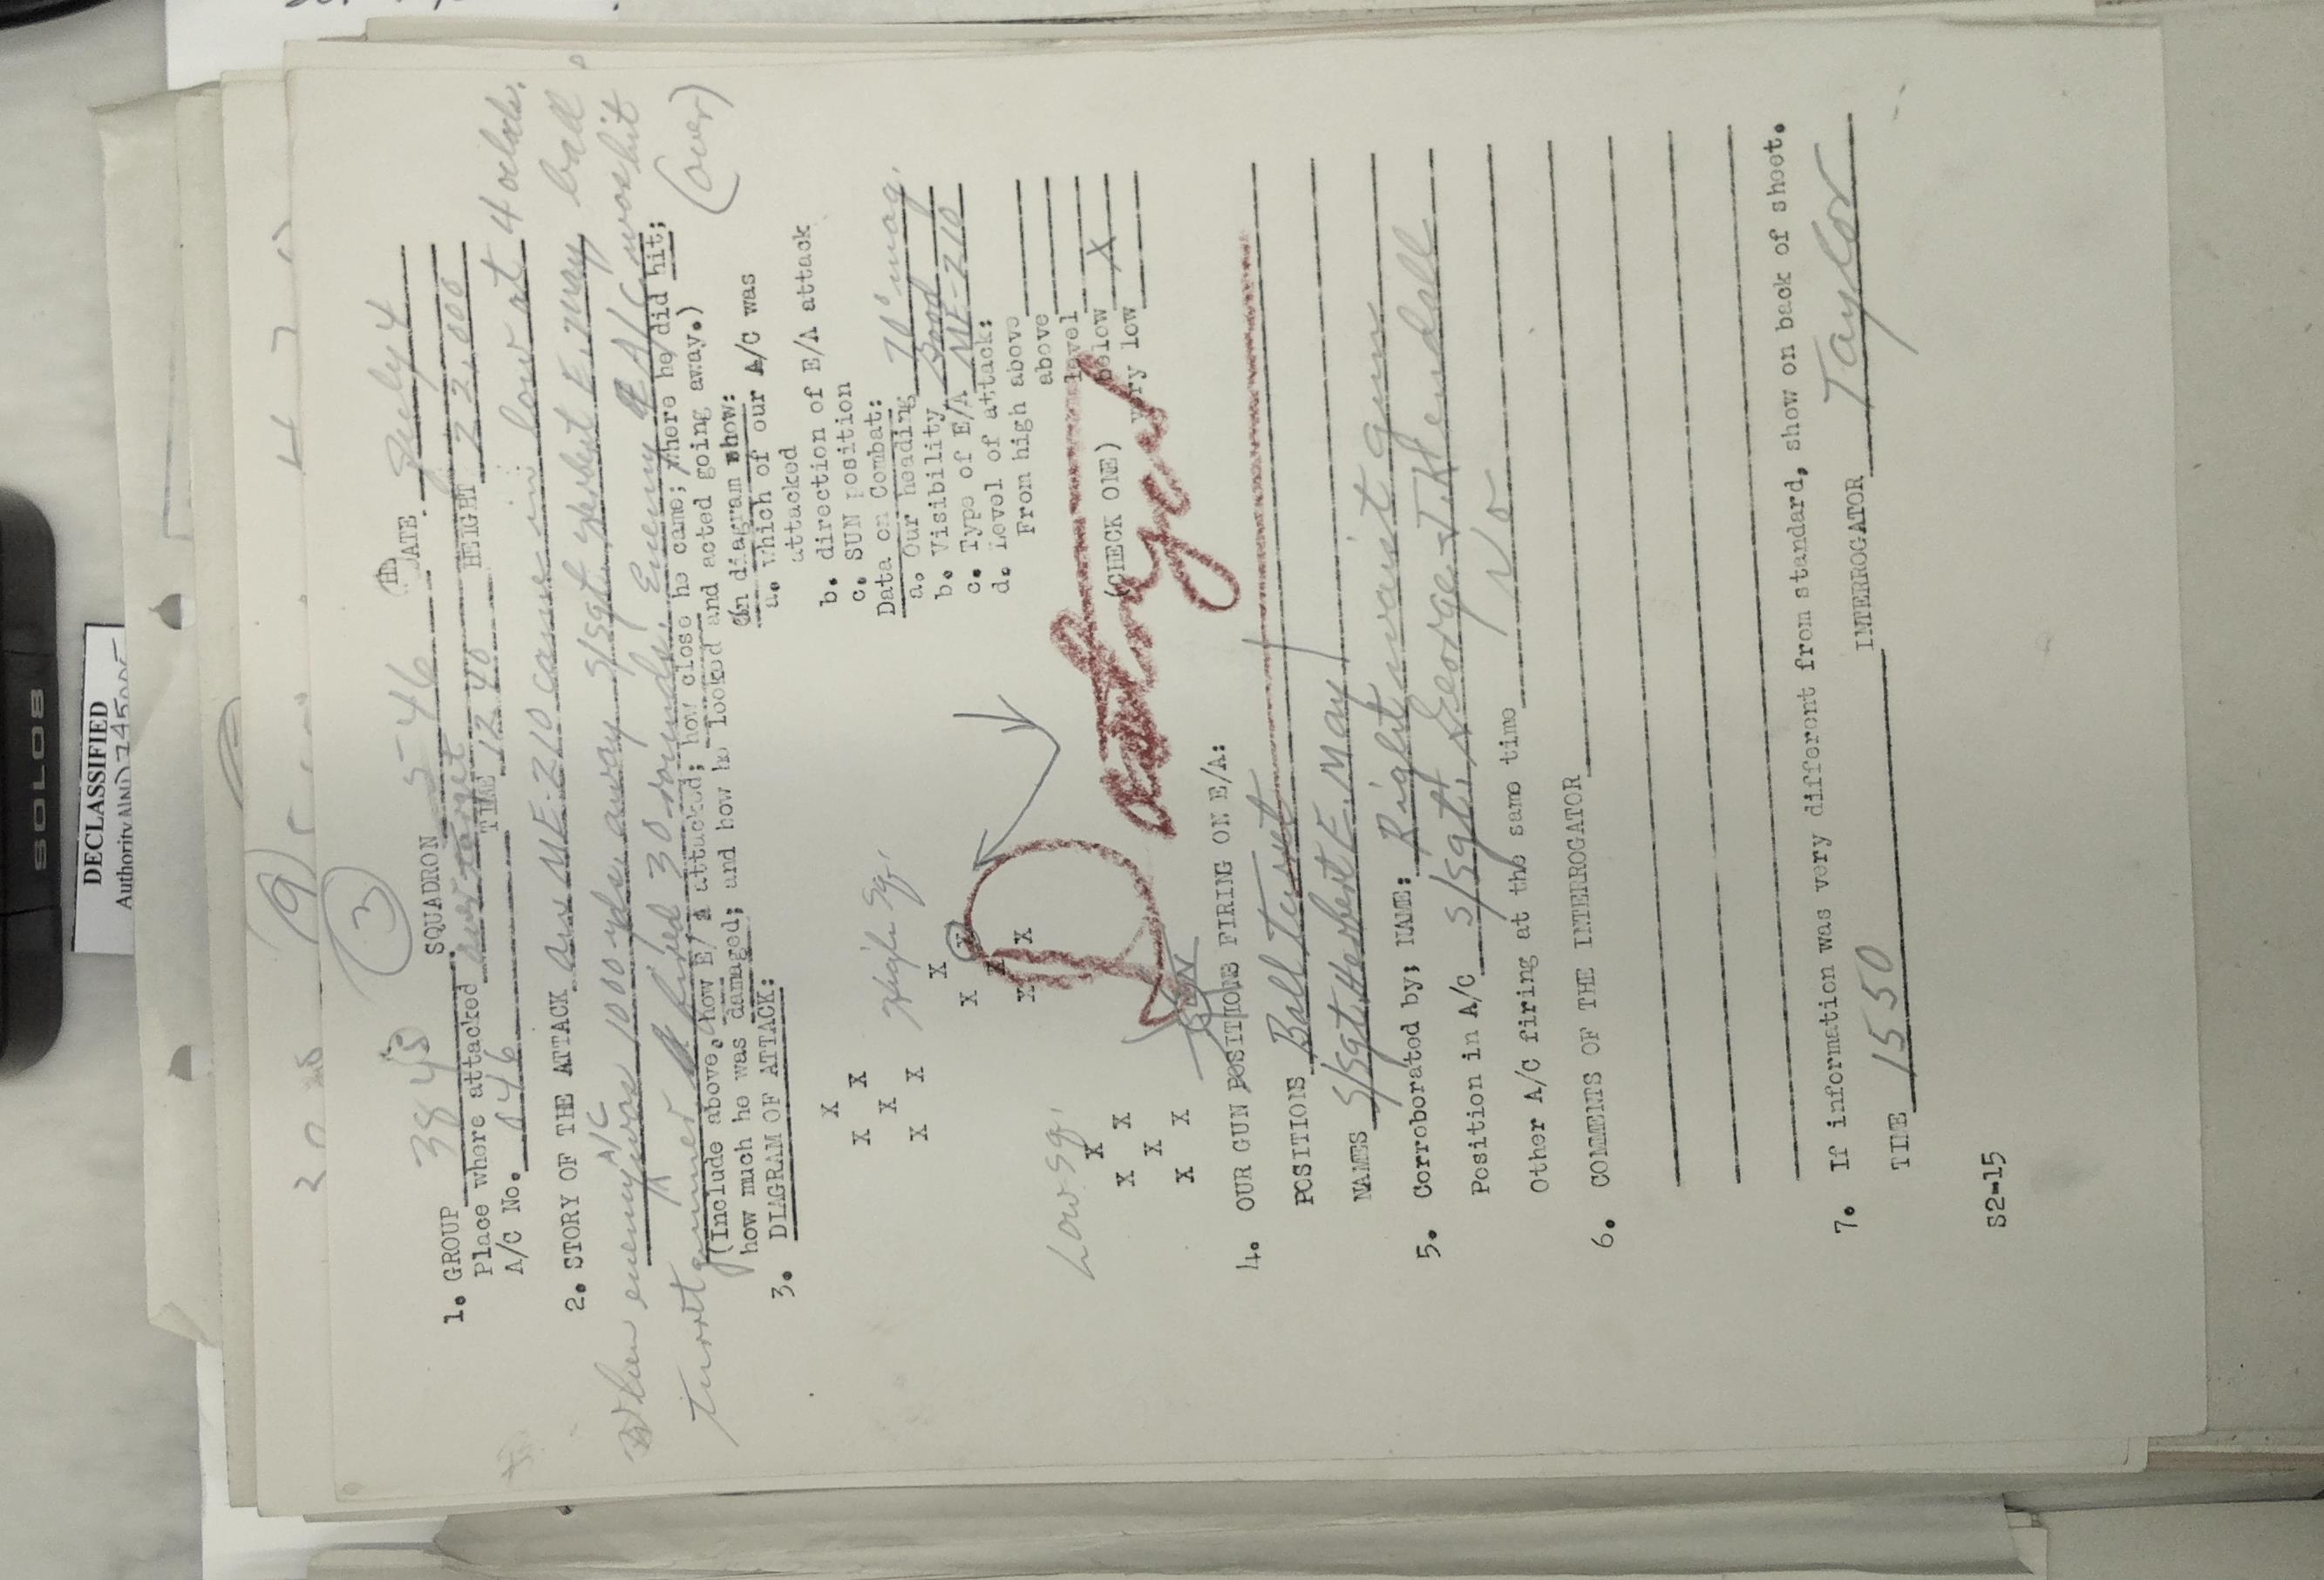 DECLASSIFIED
Authority NND 745005
SOLO8
19
3
1. GROUP 384 SQUADRON 546 DATE July 4
Place where attacked over target HEIGHT 22,000
A/C No. 046 TIME 12 40
2. STORY OF THE ATTACK an ME-210 came in low at 4 oclock.
When enemy A/C was 1000 yds away S/Sgt Herbert E. May, ball
turret gunner fired 30 rounds. Enemy A/C was hit
(Include above, how E/A attacked; how close he came; where he did hit;
how much he was damaged; and how he looked and acted going away.)
(over)
3. DIAGRAM OF ATTACK:
(In diagram show:
a. Which of our A/C was
attacked
b. direction of E/A attack
c. SUN position
Data on Combat:
a. Our heading 70° mag.
b. Visibility Good
c. Type of E/A ME-210
d. Level of attack:
From high above
above
level
(CHECK ONE) below X
very low
High Sq.
Low Sq.
X X X X X X
X X X X X X
X X X X X X
SUN
Destroyed
4. OUR GUN POSITIONS FIRING ON E/A:
POSITIONS Ball turret
NAMES S/Sgt. Herbert E. May
5. Corroborated by; NAME: Right waist gun
Position in A/C S/Sgt. George J. Kendall
Other A/C firing at the same time No
6. COMMENTS OF THE INTERROGATOR
7. If information was very different from standard, show on back of shoot.
TIME 1550 INTERROGATOR Taylor
S2-15